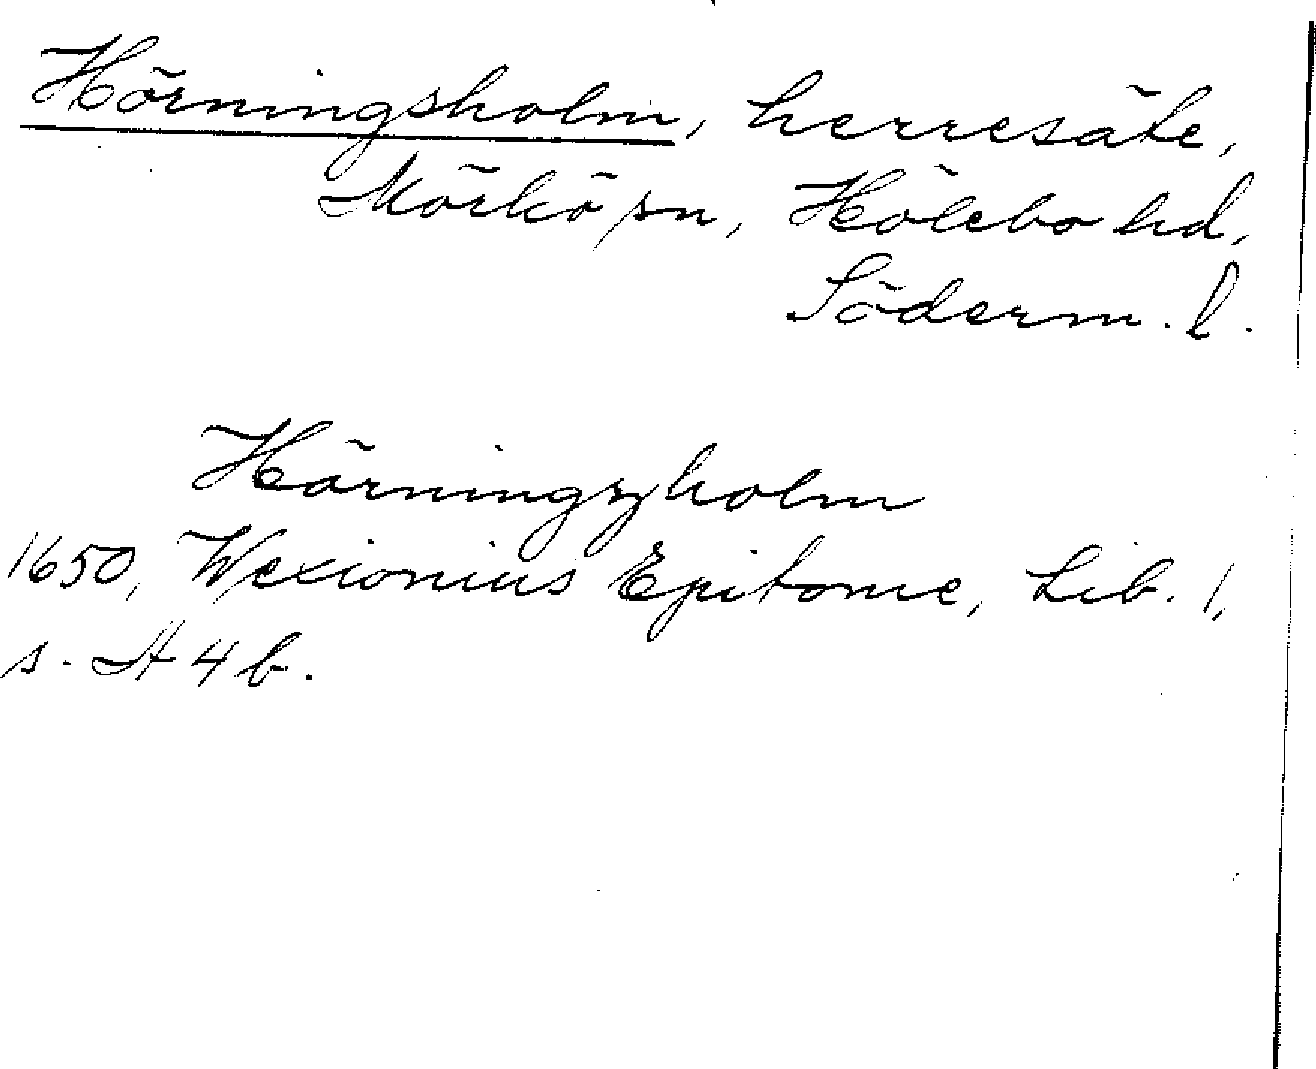 Hörningsholm, herresäte,
Mörkö sn, Hölebo hd,
Söderm. l.
Hörningzholm
1650, Wexionius Epitome, Lib. 1,
s. A 4 b.